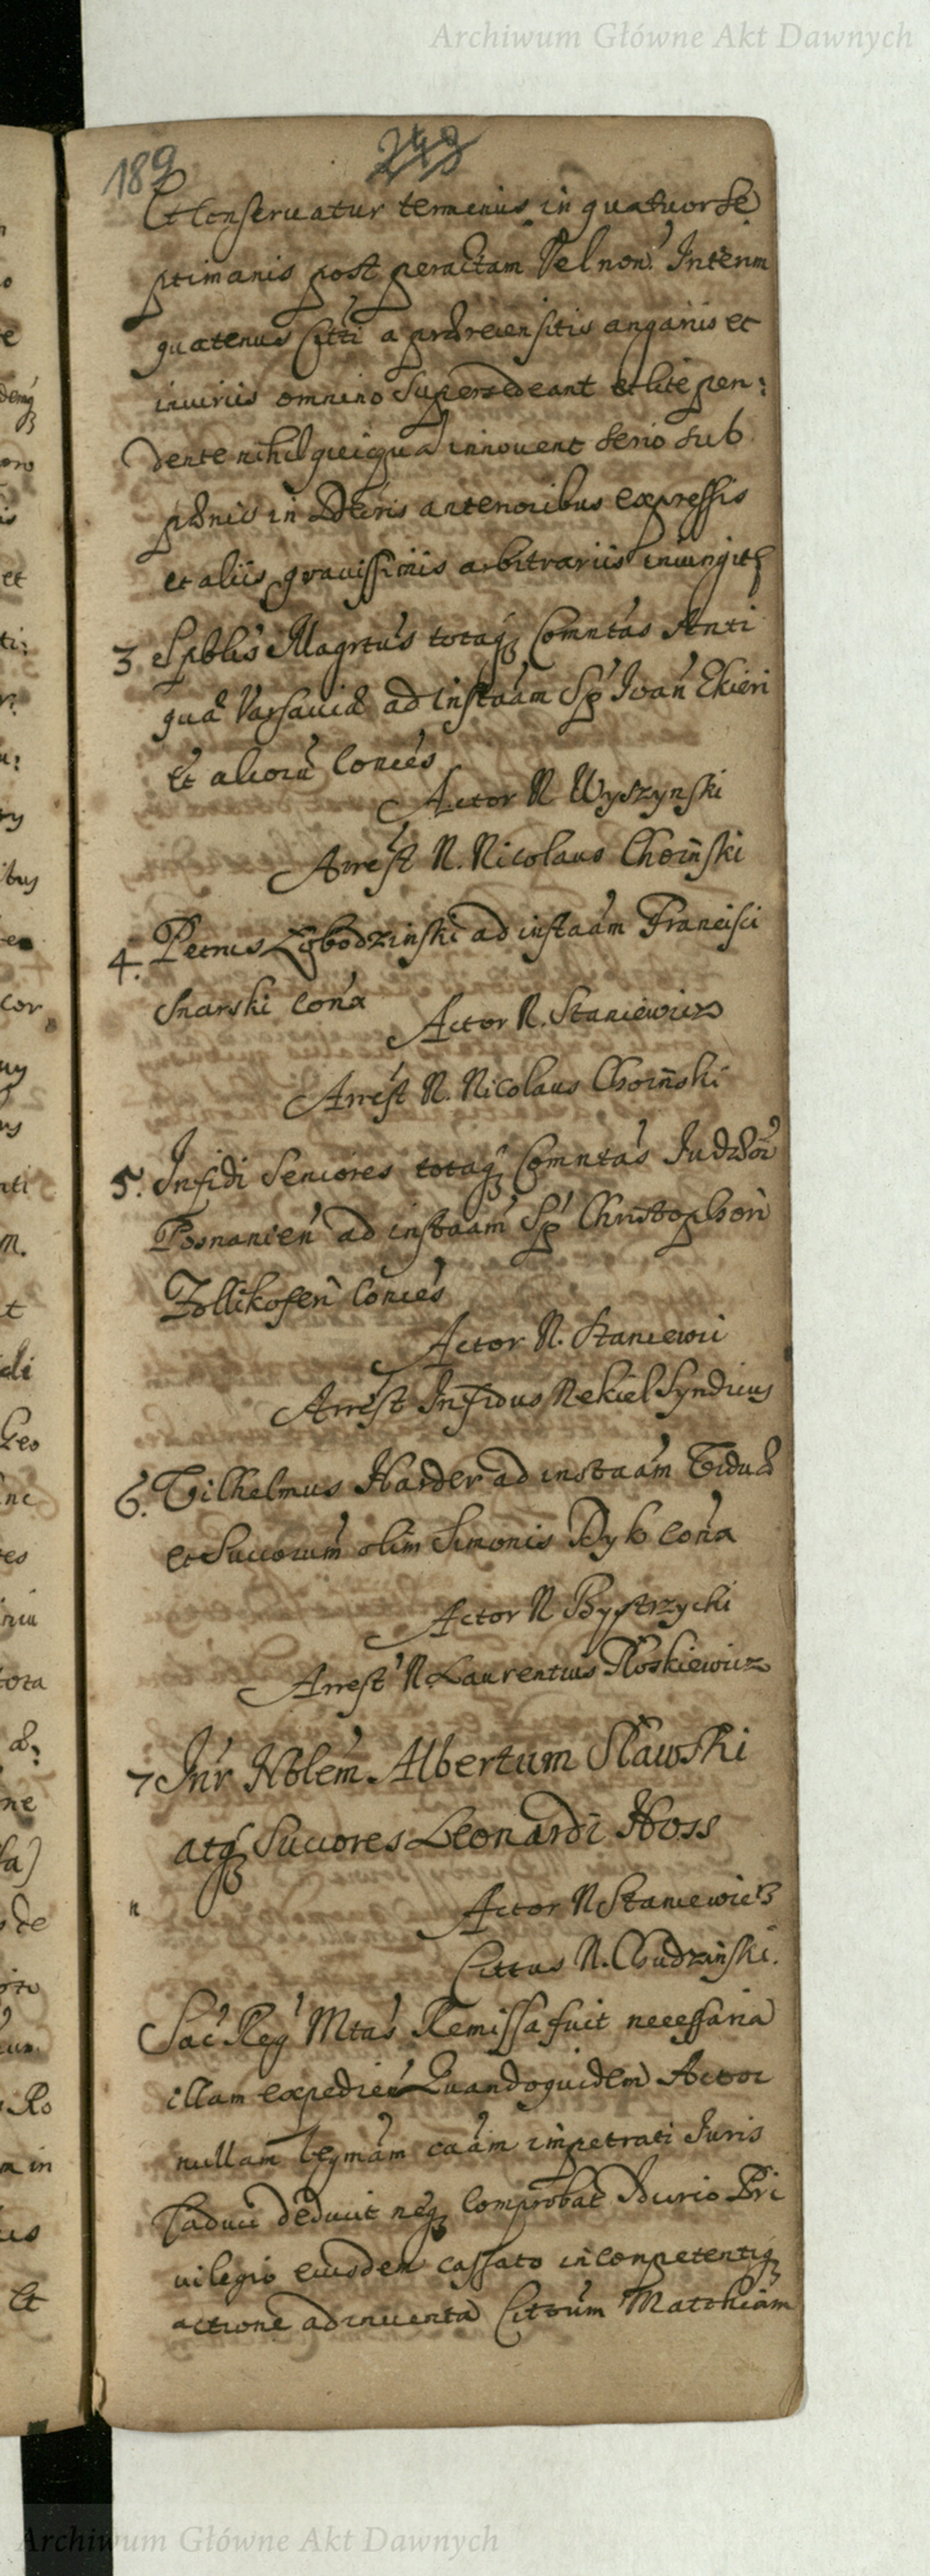 Archiwum Główne Akt Dawnych
189 249
Et Conseruatur terminus in quatuor se
ptimanis post peractam vel non. Interim
quatenus Citti a prærecensitis angariis et
iniuriis omnino supersedeant et lite pen:
dente nihil quicqua innouent serio sub
pænis in Dtris anterioribus expressis
et aliis gravissimis arbitrariis iniungit
3 Spblis Magrtus totaq Comntas Anti
quæ Varsauiæ ad instaam Sp Ioan Ekieri
Et alioru Conces
Actor N Wyszynski
Arrest N. Nicolaus Choiński
4. Petrus Łobodzinski ad instaam Francisci
Snarski Cona
Actor N. Staniewicz
Arrest N. Nicolaus Choiński
5. Infidi Seniores totaq Comntas Judæor
Posnanien ad instaam Sp Christophori
Zollikoferi Conces
Actor N. Staniewi
Arrest Infidus Nekiel Syndicus
6. Vilhelmus Harder ad instaam Viduæ
et Succorum olim Simonis Dyk Cona
Actor N Bystrzycki
Arrest N. Laurentius Płoskiewicz
7 Inr Nblem Albertum Sławski
atq Succores Leonardi Hoss
Actor N Staniewicz
Cittus N. Chudzinski.
Sac Reg Mtas Remissa fuit necessaria
illam expedien Quandoquidem Actor
nullam legmam caam impetrati Juris
Caduci deduxit neq comprobat Iurio Pri
uilegio eiusdem cassato incompetentiq
actione adinuenta Cittum Matthiam
Archiwum Główne Akt Dawnych